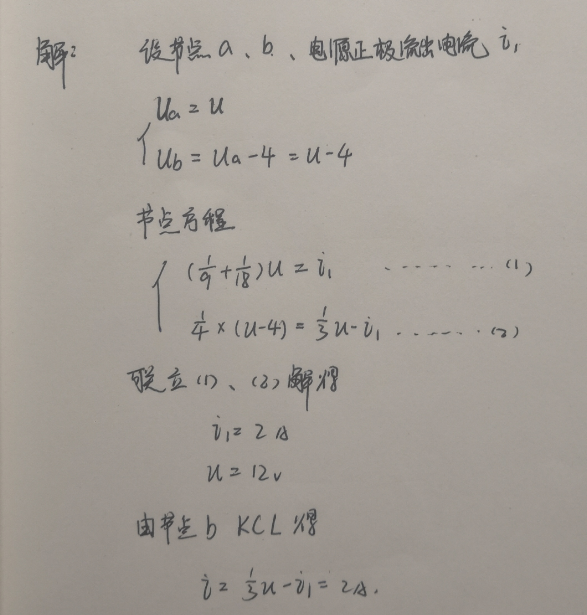 解: 设节点a、b、电源正极流出电流 i₁
Ua = U
Ub = Ua-4 = U-4
节点方程
(1/9+1/18)U = i₁ ………(1)
1/4×(U-4) = 1/3U-i₁ ………(2)
联立(1)、(2)解得
i₁= 2A
U = 12V
由节点b KCL 得
i= 1/3U-i₁= 2A.